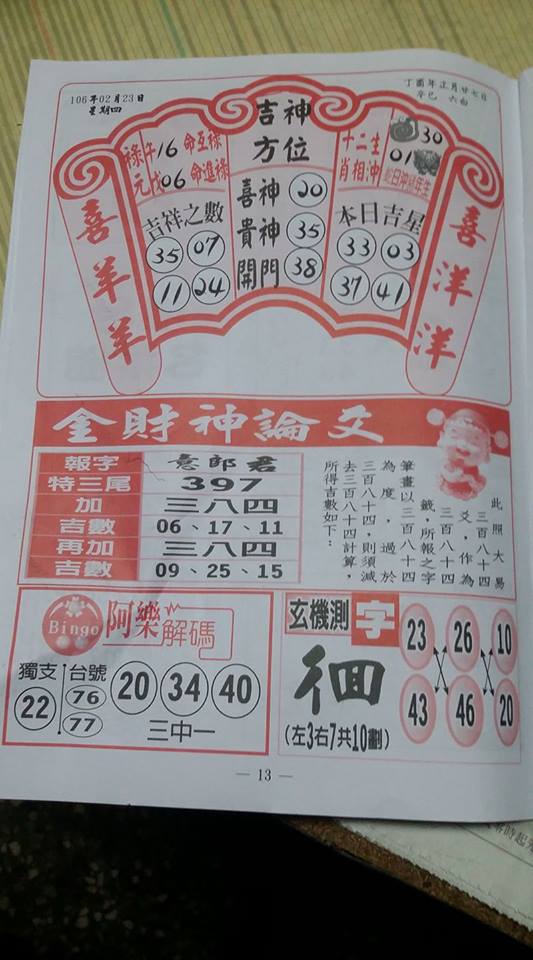 106年02月23日
星期四
丁酉年正月廿七日
辛巳 六白
吉神
方位
祿 午16 命互祿
元 戌06 命進祿
十二生
肖相沖
30
01
蛇日沖豬年生
吉祥之數
35 07
11 24
喜神 20
貴神 35
開門 38
本日吉星
33 03
37 41
喜羊羊
喜洋洋
金財神論爻
報字 意郎君
特三尾 397
加 三八四
吉數 06、17、11
再加 三八四
吉數 09、25、15
此照大易
三百八十四
爻,作為
三百八十四
籤,所報之字
筆畫以三百八十四
為度,過於
三百八十四,則須減
去三百八十四計算,
所得吉數如下:
Bingo
阿樂解碼
獨支
22
台號
76
77
20 34 40
三中一
玄機測字
徊
(左3右7共10劃)
23 26 10
43 46 20
— 13 —